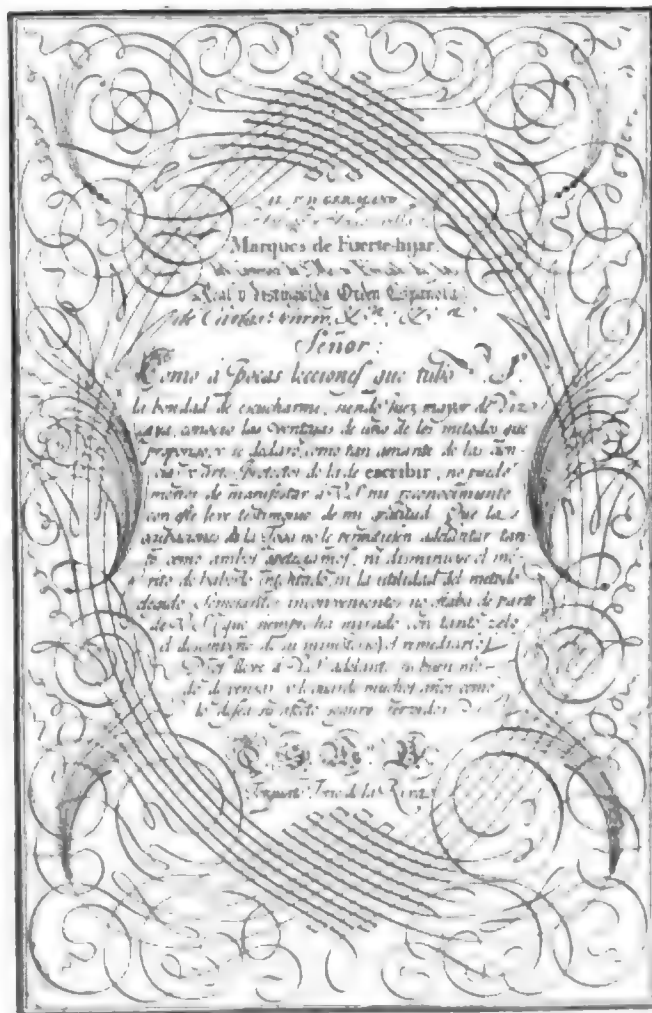 Marques de Fuerte-hijar.
Real y distinguida Orden Española
de Carlos
Señor:
Como à pocas lecciones que tubo V.S.
la bondad de escucharme, siendo Juez mayor de Viz-
caya, conocio las ventajas de uno de los metodos que
propongo, y se declaró, como tan amante de las
Protector de la de escribir, no puedo
menos de manifestar à V.S. mi reconocimiento
con este leve testimonio de mi gratitud. Que las
ocupaciones de la Toga no le permitiesen adelantar tan-
to como ambos apeteciamos, ni disminuye el me-
rito de haberlo intentado, ni la utilidad del metodo
semejantes inconvenientes no estaba de parte
de V.S. (que siempre ha mirado con tanto zelo
el desempeño de su ministerio) el remediarlos
Dios lleve à V.S. adelante su buen mo-
do de pensar, y le guarde muchos años como
lo desea su afecto seguro servidor
Torquato Torio de la Riva